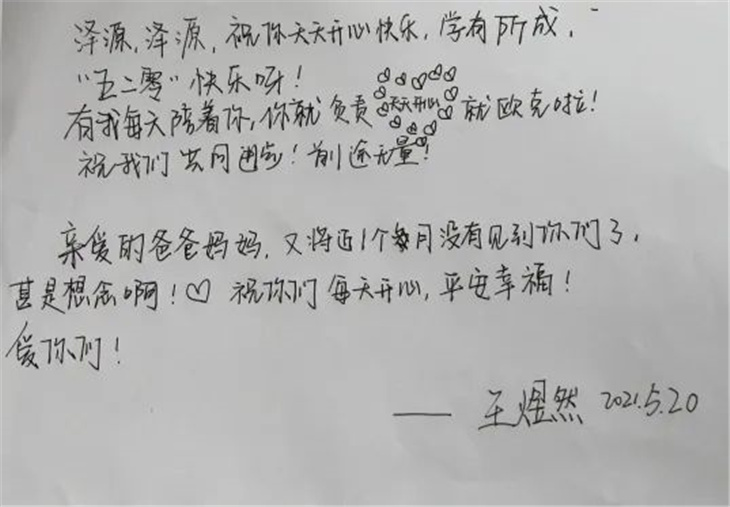 泽源,泽源,祝你天天开心快乐,学有所成,
“五二零”快乐呀!
有我每天陪着你,你就负责天天开心就欧克啦!
祝我们共同进步!前途无量!
亲爱的爸爸妈妈,又将近1个月没有见到你们了,
甚是想念啊!♡ 祝你们每天开心,平安幸福!
爱你们!
—— 王煜然 2021.5.20